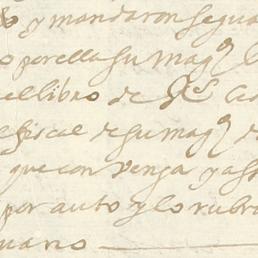 y mandaron segua
o por ella su mag^d
el libro de R^s
fiscal de su mag^d d
que con venga y ass
por auto y lo rubra
uano